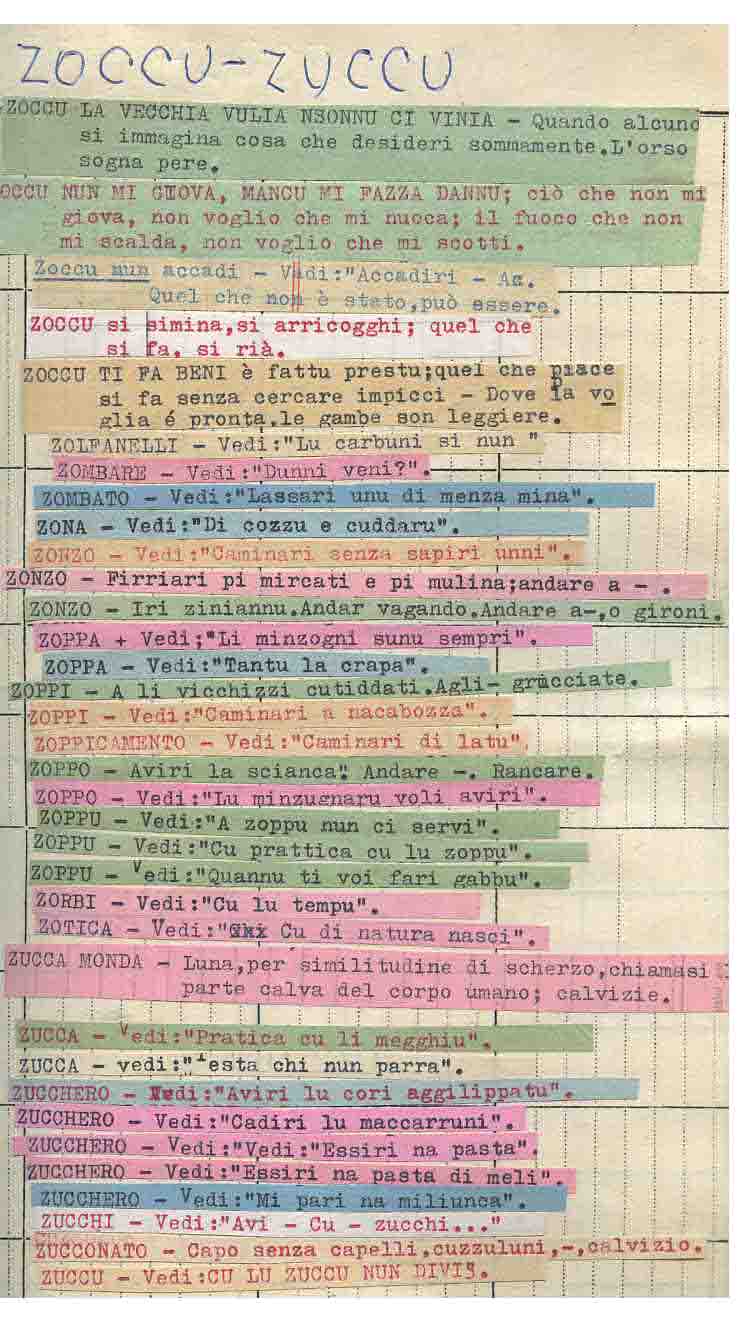 ZOCCU-ZUCCU
ZOCCU LA VECCHIA VULIA NSONNU CI VINIA - Quando alcuno
si immagina cosa che desideri sommamente.L'orso
sogna pere.
OCCU NUN MI GIOVA, MANCU MI FAZZA DANNU; ciò che non mi
giova, non voglio che mi nuoca; il fuoco che non
mi scalda, non voglio che mi scotti.
Zoccu nun accadi - Vidi:"Accadiri - Ac.
Quel che non è stato,può essere.
ZOCCU si simina,si arricogghi; quel che
si fa, si rià.
ZOCCU TI FA BENI è fattu prestu;quel che piace
si fa senza cercare impicci - Dove la vo
glia é pronta,le gambe son leggiere.
ZOLFANELLI - Vedi:"Lu carbuni si nun "
ZOMBARE - Vedi:"Dunni veni?".
ZOMBATO - Vedi:"Lassari unu di menza mina".
ZONA - Vedi:"Di cozzu e cuddaru".
ZONZO - Vedi:"Caminari senza sapiri unni".
ZONZO - Firriari pi mircati e pi mulina;andare a - .
ZONZO - Iri ziniannu.Andar vagando.Andare a-,o gironi.
ZOPPA + Vedi;"Li minzogni sunu sempri".
ZOPPA - Vedi:"Tantu la crapa".
ZOPPI - A li vicchizzi cutiddati.Agli- grucciate.
ZOPPI - Vedi:"Caminari a nacabozza".
ZOPPICAMENTO - Vedi:"Caminari di latu".
ZOPPO - Aviri la scianca". Andare -. Rancare.
ZOPPO - Vedi:"Lu minzugnaru voli aviri".
ZOPPU - Vedi:"A zoppu nun ci servi".
ZOPPU - Vedi:"Cu prattica cu lu zoppu".
ZOPPU - Vedi:"Quannu ti voi fari gabbu".
ZORBI - Vedi:"Cu lu tempu".
ZOTICA - Vedi:" Cu di natura nasci".
ZUCCA MONDA - Luna,per similitudine di scherzo,chiamasi
parte calva del corpo umano; calvizie.
ZUCCA - Vedi:"Pratica cu li megghiu".
ZUCCA - vedi:"Testa chi nun parra".
ZUCCHERO - Vedi:"Aviri lu cori aggilippatu".
ZUCCHERO - Vedi:"Cadiri lu maccarruni".
ZUCCHERO - Vedi:"Vedi:"Essiri na pasta".
ZUCCHERO - Vedi:"Essiri na pasta di meli".
ZUCCHERO - Vedi:"Mi pari na miliunca".
ZUCCHI - Vedi:"Avi - Cu - zucchi..."
ZUCCONATO - Capo senza capelli,cuzzuluni,-,calvizio.
ZUCCU - Vedi:CU LU ZUCCU NUN DIVIS.